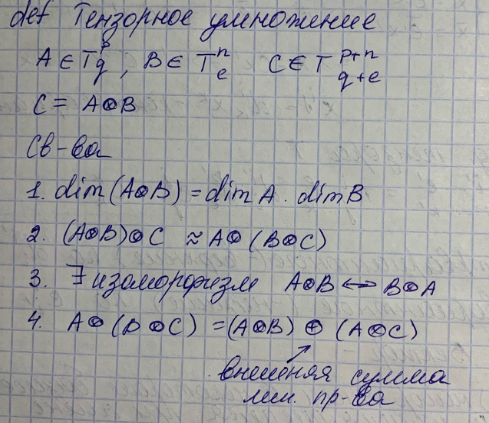 def Тензорное умножение
A ∈ T^p_q, B ∈ T^n_e C ∈ T^{p+n}_{q+e}
C = A⊗B
Св-ва
1. dim(A⊗B) = dim A · dim B
2. (A⊗B)⊗C ≈ A⊗(B⊗C)
3. ∃ изоморфизм A⊗B ↔ B⊗A
4. A⊗(B⊕C) = (A⊗B) ⊕ (A⊗C)
внешняя сумма
лин. пр-ва